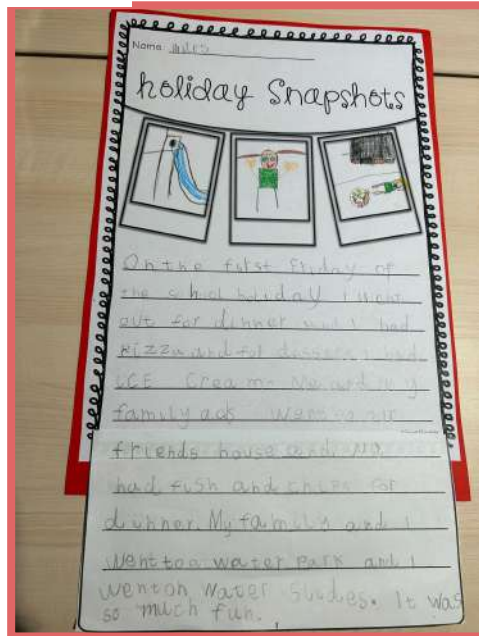 Name
Holiday Snapshots
On the first friday of
the school holiday I
out for dinner and I had
pizza and for I had
ICE Cream. Me and my
family went to
friends house and
had fish and chips for
dinner. My family and I
went to a water Park and I
went on water Slides. It was
so much fun.